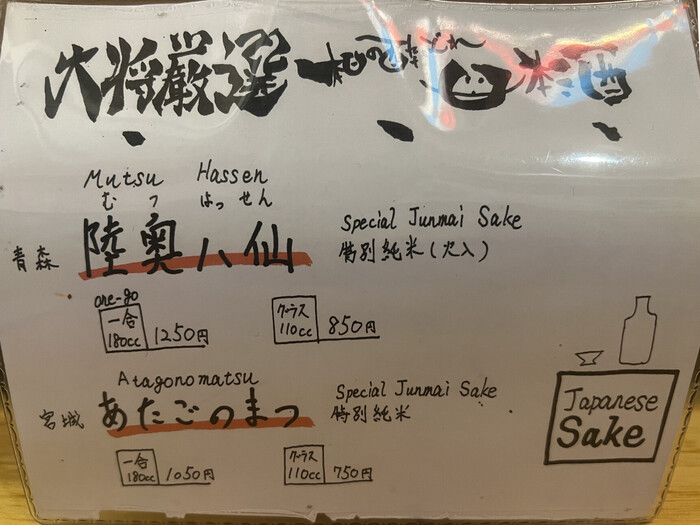 大将厳選 日本酒
Mutsu Hassen
むつ はっせん
青森 陸奥八仙 Special Junmai Sake
特別純米(火入)
one-go
一合 180cc 1250円 グラス 110cc 850円
Atagonomatsu
宮城 あたごのまつ Special Junmai Sake
特別純米
一合 180cc 1050円 グラス 110cc 750円
Japanese
Sake